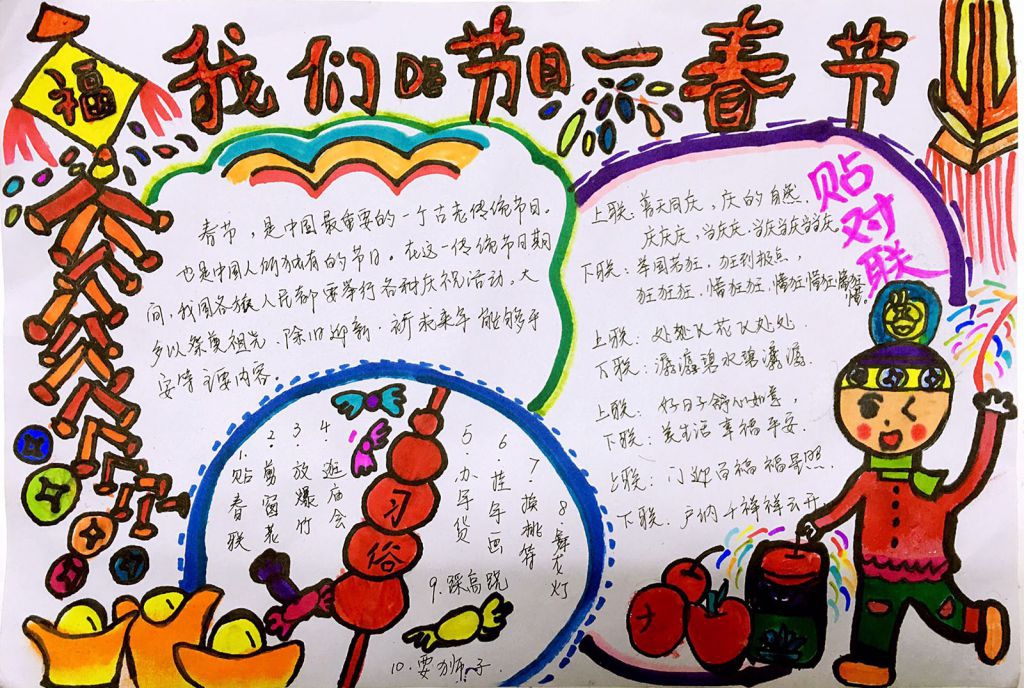 福
我们的节日一春节
春节，是中国最重要的一个古老传统节日。
也是中国人所独有的节日。在这一传统节日期
间，我国各族人民都要举行各种庆祝活动。大
多以祭奠祖先、除旧迎新、祈求来年能够平
安等主要内容。
习俗
1.贴春联
2.剪窗花
3.放爆竹
4.逛庙会
5.办年货
6.挂年画
7.换桃符
8.舞龙灯
9.踩高跷
10.耍狮子
贴对联
上联：普天同庆，庆的自然，
庆庆庆，当庆庆，当庆当庆当当庆。
下联：举国若狂，狂到极点，
狂狂狂，懵狂狂，懵狂懵狂懵懵狂
上联：处处飞花飞处处
下联：潺潺碧水碧潺潺
上联：好日子舒心如意，
下联：美生活幸福平安.
上联：门迎百福福星照.
下联：户纳千祥祥云开